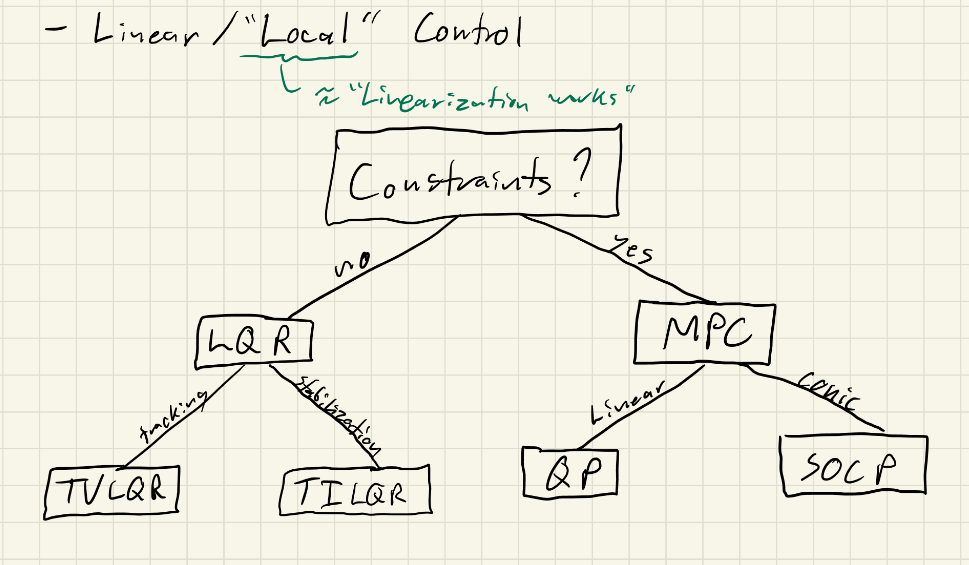 - Linear / "Local" Control
≈ "Linearization works"
Constraints ?
no
Yes
LQR
MPC
tracking
stabilization
Linear
conic
TVLQR
TILQR
QP
SOCP